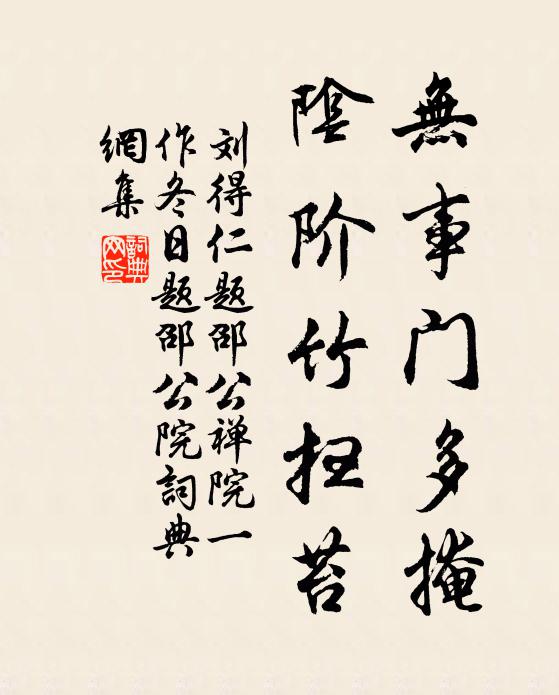 無事門多掩
陰阶竹扫苔
刘得仁题邵公禅院一
作冬日题邵公院詞典
網集
詞典網印